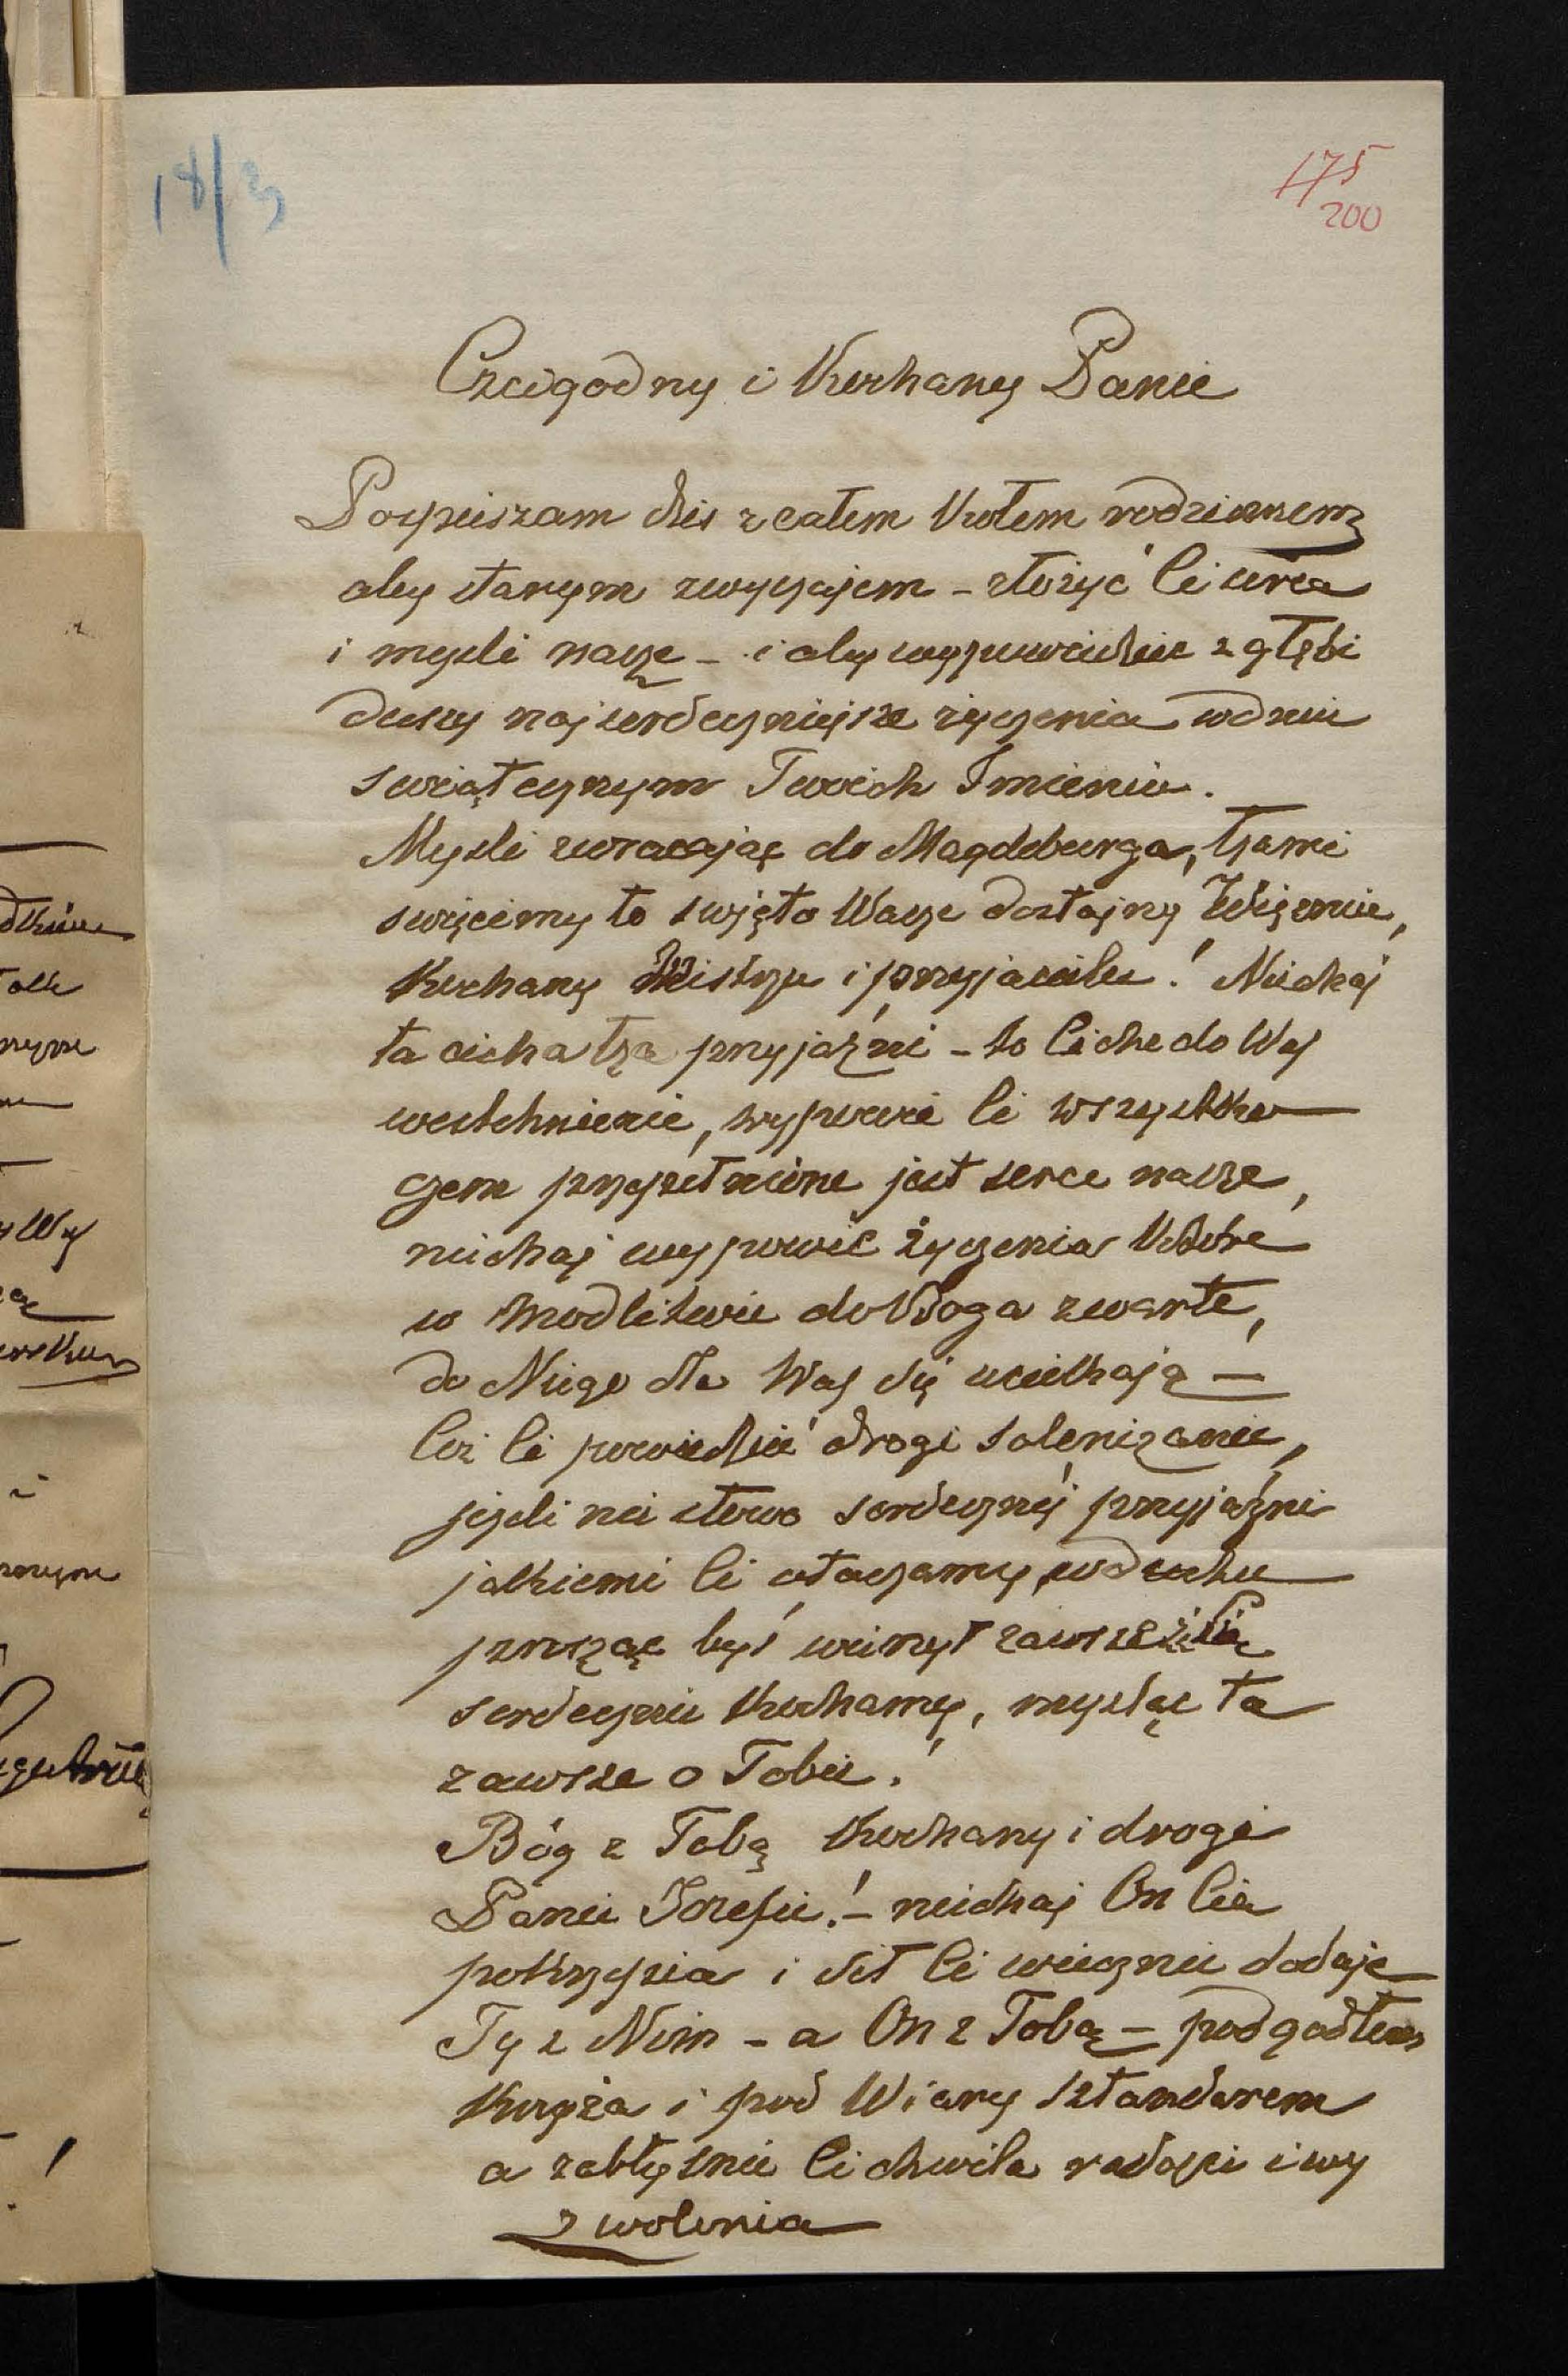 18/3
175
200
Czcigodny i Kochany Panie
Pospieszam dziś z całem Kołem rodzinnem
aby starym zwyczajem – złożyć Ci serca
i myśli nasze – i aby wypowiedzieć z głębi
duszy najserdeczniejsze życzenia w dniu
świątecznym Twoich Imienin.
Myśli zwracając do Magdeburga, łzami
święcimy to święto Wasze dostojny Więźniu,
Kochany Mistrzu i przyjacielu! Niechaj
ta cicha łza przyjaźni – to Ciche do Was
westchnienie, wypowie Ci wszystko
czem przepełnione jest serce nasze,
niechaj wypowie życzenia Które
w modlitwie do Boga zwarte,
do Niego dla Was się uciekają –
Cóż Ci powiedzieć drogi solenizancie,
jeżeli nie słowa serdecznej przyjaźni
jakiemi Ci otaczamy, w duchu
prosząc byś wierzył zawsze że Cię
serdecznie Kochamy, myśląc tu
zawsze o Tobie!
Bóg z Tobą Kochany i drogi
Panie Józefie! – niechaj On Cię
pokrzepia i sił Ci wiecznie dodaje
Ty z Nim – a On z Tobą – pod godłem
Krzyża i pod Wiary sztandarem
a zabłyśnie Ci chwila radości i wy
zwolenia